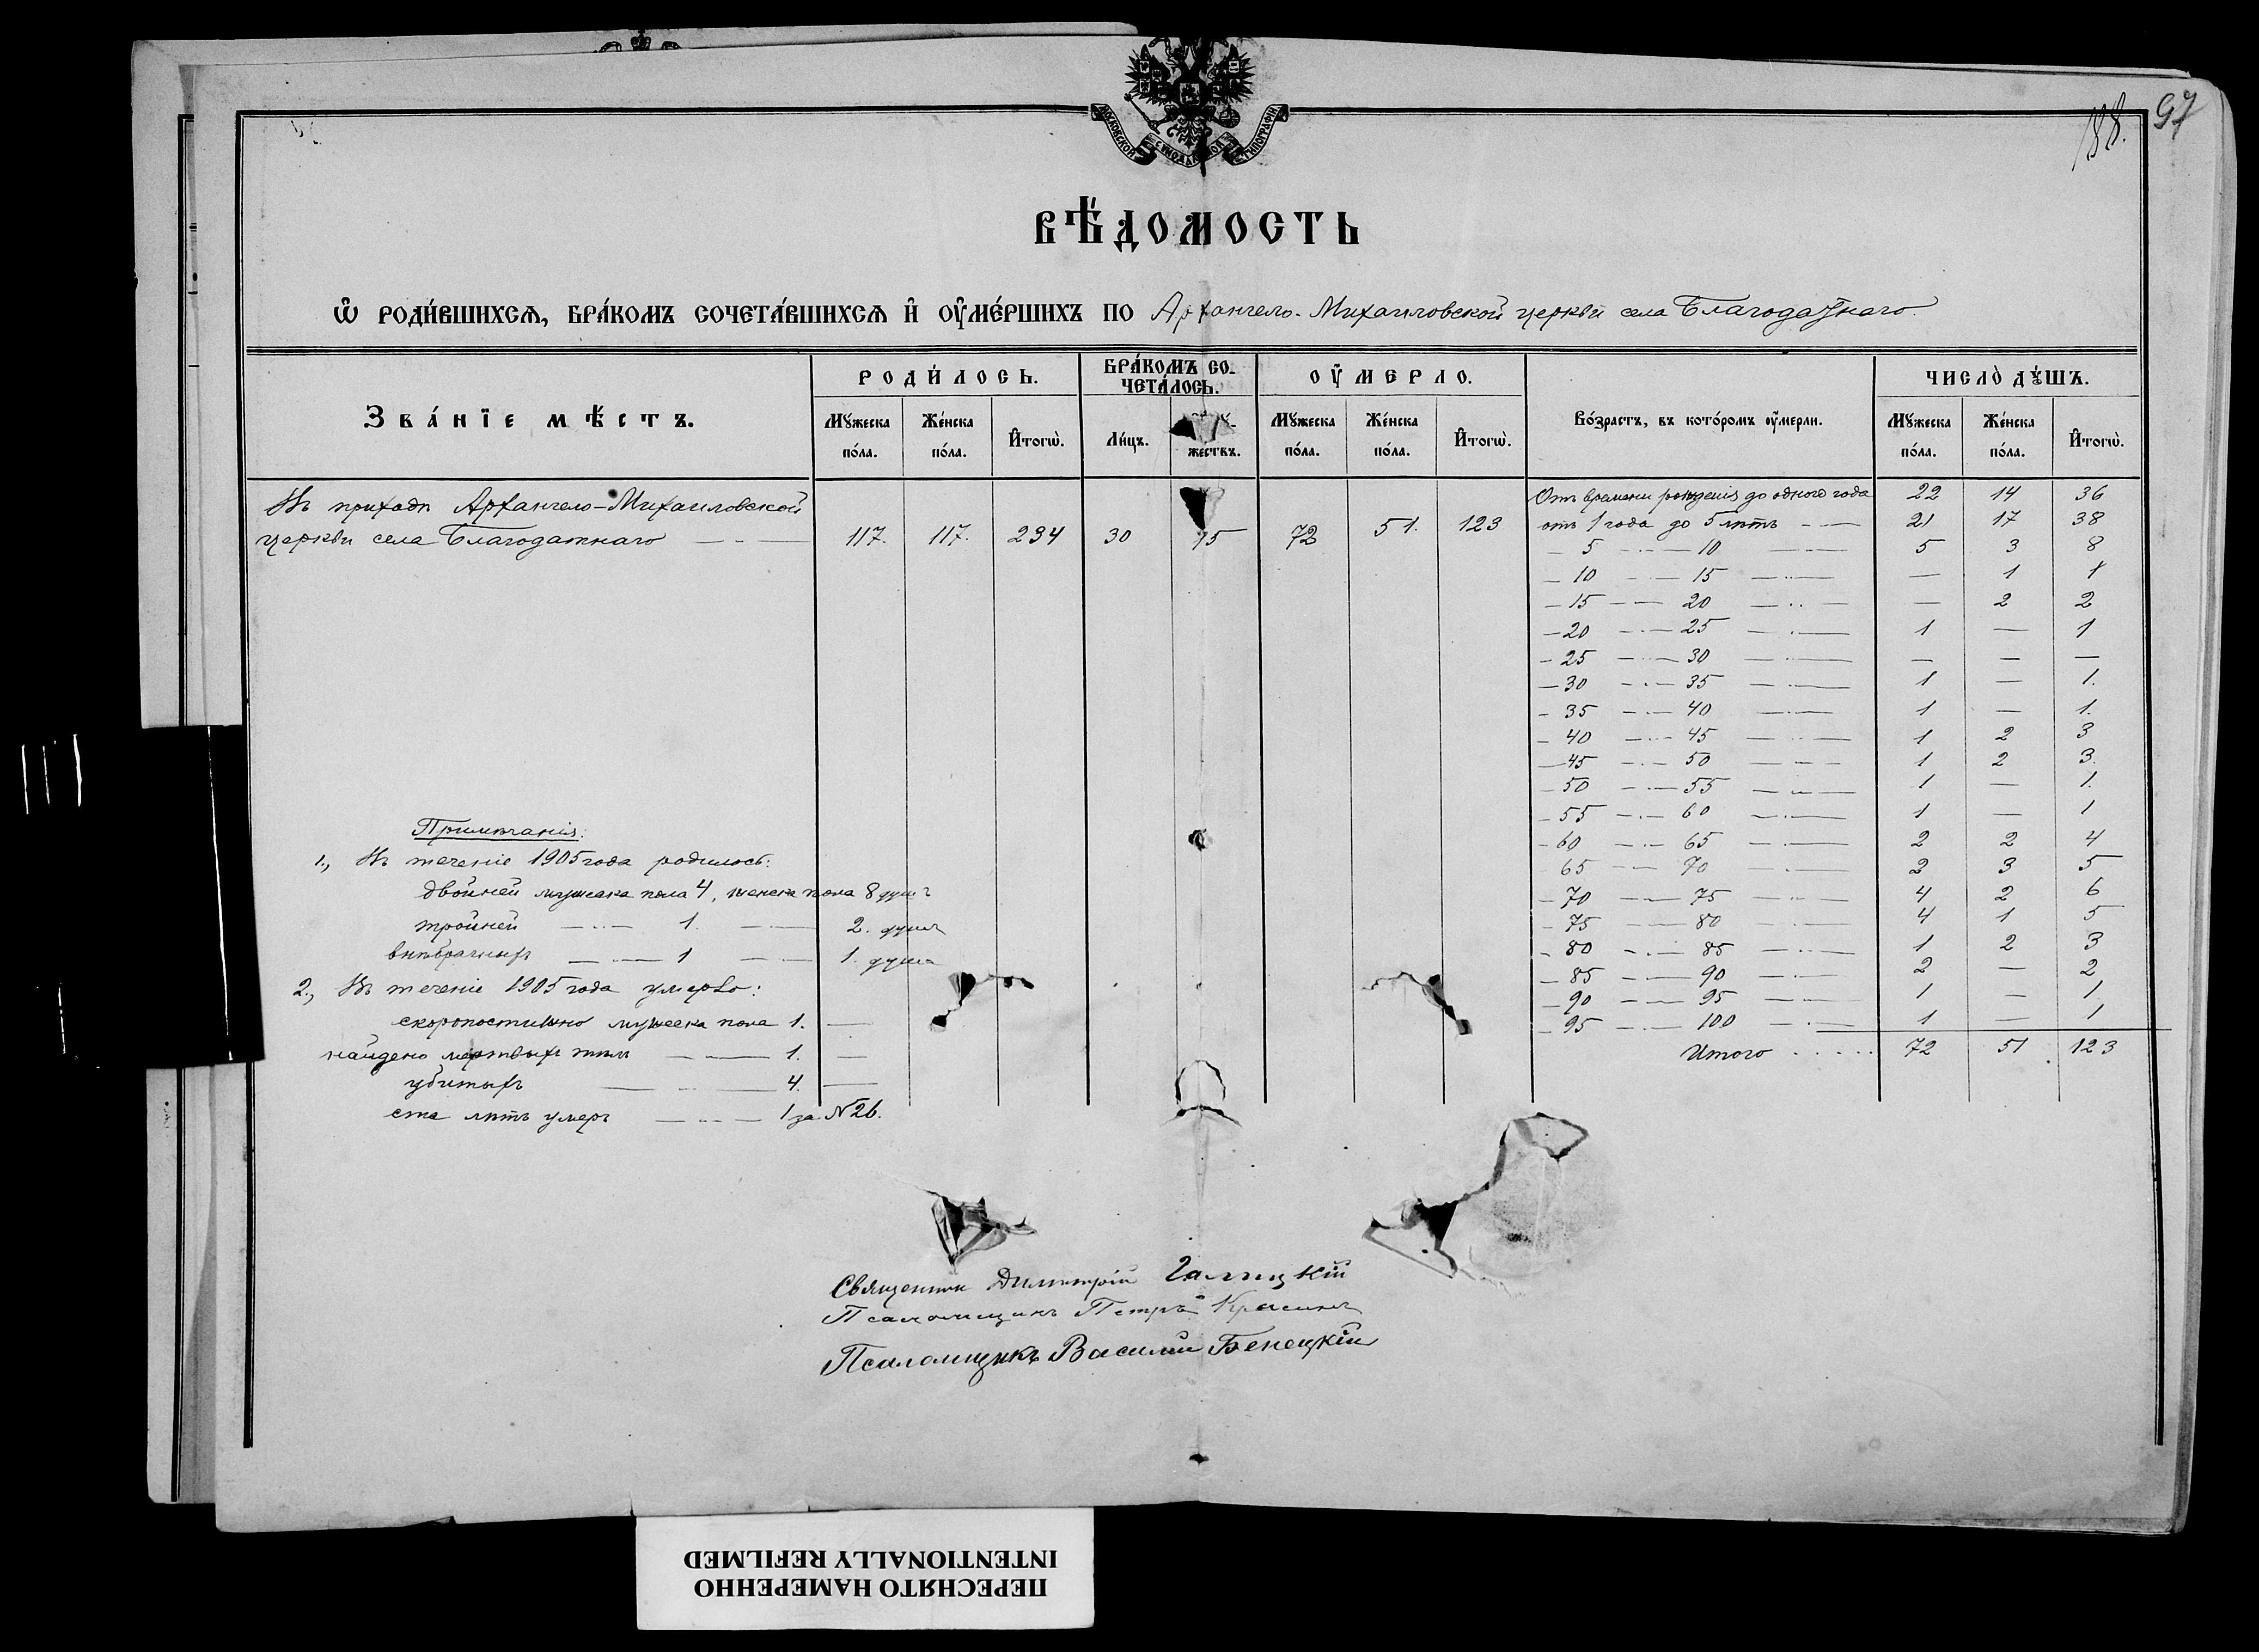 97
188.
МОСКОВСКОЙ СѴНОДАЛЬНОЙ ТИПОГРАФІИ
ВѢ́ДОМОСТЬ
Ѡ҆ РОДИ́ВШИХСѦ, БРА́КОМЪ СОЧЕТА́ВШИХСѦ И҆ ОУ҆МЕ́РШИХЪ ПО Архангело-Михаиловской церкви села Благодатнаго.
Зва́нїе мѣ́стъ.
РОДИ́ЛОСЬ.
БРА́КОМЪ СО-
ЧЕТА́ЛОСЬ.
ОУ҆́МЕРЛО.
Во́зрастъ, въ кото́ромъ оу҆́мерли.
ЧИСЛО̀ ДꙊ́ШЪ.
Мꙋ́жеска по́ла. Же́нска по́ла. И҆тогѡ̀. Ли́цъ. жествъ. Мꙋ́жеска по́ла. Же́нска по́ла. И҆тогѡ̀. Мꙋ́жеска по́ла. Же́нска по́ла. И҆тогѡ̀.
Въ приходѣ Архангело-Михаиловской
церкви села Благодатнаго — 117. 117. 234 30 15 72 51. 123
Отъ времени рожденія до одного года 22 14 36
отъ 1 года до 5 лѣтъ — 21 17 38
— 5 — 10 — 5 3 8
— 10 — 15 — — 1 1
— 15 — 20 — — 2 2
— 20 — 25 — 1 — 1
— 25 — 30 — — — —
— 30 — 35 — 1 — 1.
— 35 — 40 — 1 — 1.
— 40 — 45 — 1 2 3
— 45 — 50 — 1 2 3.
— 50 — 55 — 1 — 1.
— 55 — 60 — 1 — 1
— 60 — 65 — 2 2 4
65 — 70 — 2 3 5
— 70 — 75 — 4 2 6
— 75 — 80 — 4 1 5
— 80 — 85 — 1 2 3
— 85 — 90 — 2 — 2
— 90 — 95 — 1 — 1
— 95 — 100 — 1 — 1
Итого ..... 72 51 123
Примѣчанія:
1., Въ теченіе 1905 года родилось:
двойней мужска пола 4, женска пола 8 душъ
тройней — 1. — 2. душъ
внѣбрачныхъ — 1 — 1. душа
2., Въ теченіе 1905 года умерло:
скоропостижно мужеска пола 1. —
найдено мертвыхъ тѣлъ — 1. —
убитыхъ — 4. —
ста лѣтъ умеръ — 1 за №26.
Священникъ Димитрій Галицкій
Псаломщикъ Петръ Красинъ
Псаломщикъ Василій Бенецкій
ПЕРЕСНЯТО НАМЕРЕННО
INTENTIONALLY REFILMED